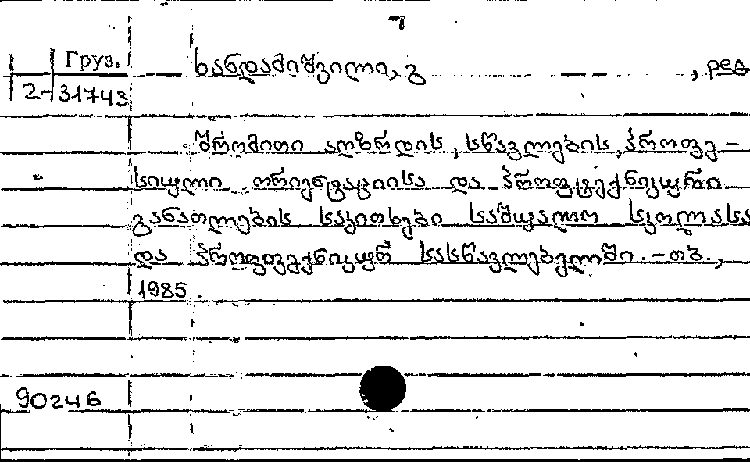 Груз.
2-31743
ხანდამიშვილი, გ , ред
შრომითი აღზრდის, სწავლების, პროფე-
სიული ორიენტაციისა და პროფტექნიკური
განათლების საკითხები საშუალო სკოლასა
და პროფტექნიკურ სასწავლებელში. - თბ.,
1985.
90246